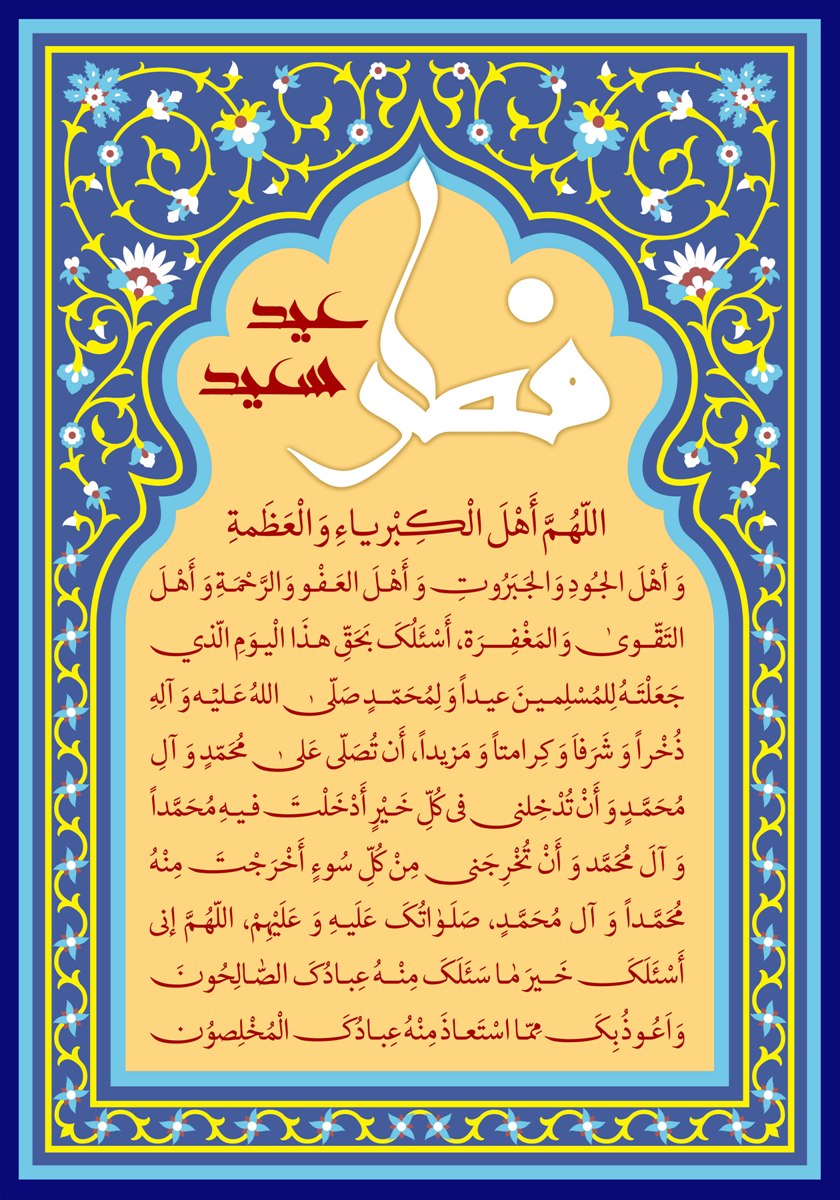 عید
سعید
فطر
اللّهُمَّ أَهْلَ الْكِبْرياءِ وَ الْعَظَمةِ
وَ أهْلَ الجُودِ وَ الجَبَرُوتِ وَ أَهْلَ العَفْوِ وَ الرَّحْمَةِ وَ أَهْلَ
التَقّوىٰ وَ المَغْفِرَة، أَسْئَلُکَ بَحَقِّ هـٰذَا الْیَومِ الّذی
جَعَلْتَهُ لِلمُسْلِمـینَ عیـداً وَ لِمُحَمّـدٍ صَلّیٰ اللهُ عَلیْه وَ آلِهِ
ذُخْراً وَ شَرَفاً وَ کِرامتاً وَ مَزیداً، أَن تُصَلّی عَلیٰ مُحَمّدٍ وَ آلِ
مُحَمَّدٍ وَ أَنْ تُدْخِلنی فی کُلِّ خَیْرٍ أَدْخَلْتَ فیـهِ مُحَمَّداً
وَ آلَ مُحَمَّد وَ أَنْ تُخْرِجَنی مِنْ کُلِّ سُوءٍ أَخْرَجْتَ مِنْهُ
مُحَمَّـداً وَ آل مُحَمَّـدٍ، صَلَـوٰاتُکَ عَلَیـهِ وَ عَلَیْهِمْ، اللّهُمَّ إنی
أَسْئَلَکَ خَـیرَ مٰـا سَئَلَکَ مِنْـهُ عِبـادُکَ الصّٰالِحُونَ
وَ اَعُـوذُ بِکَ مِمّـا اسْتَعـاذَ مِنْهُ عِبـادُکَ الْمُخْلِصوُن